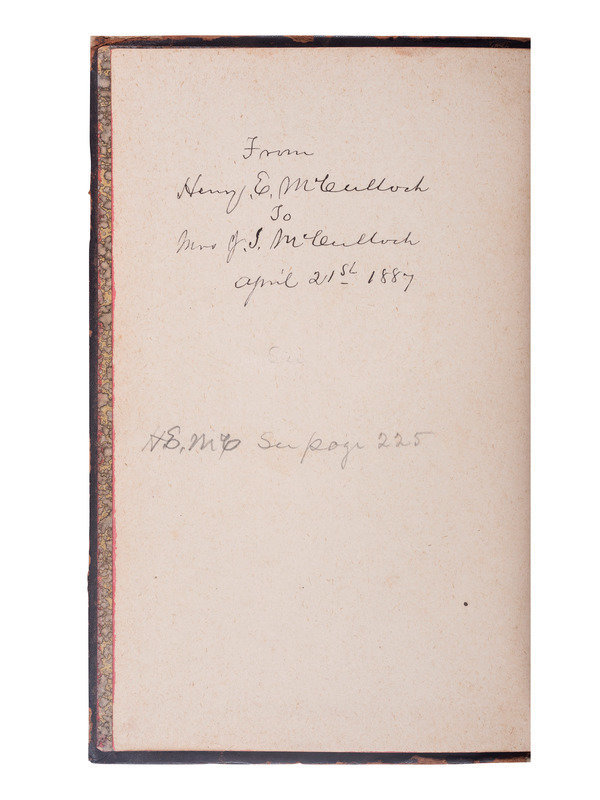 From
Henry E. McCulloch
To
Mrs J. S. McCulloch
April 21st 1887
See
H E. McC See page 225